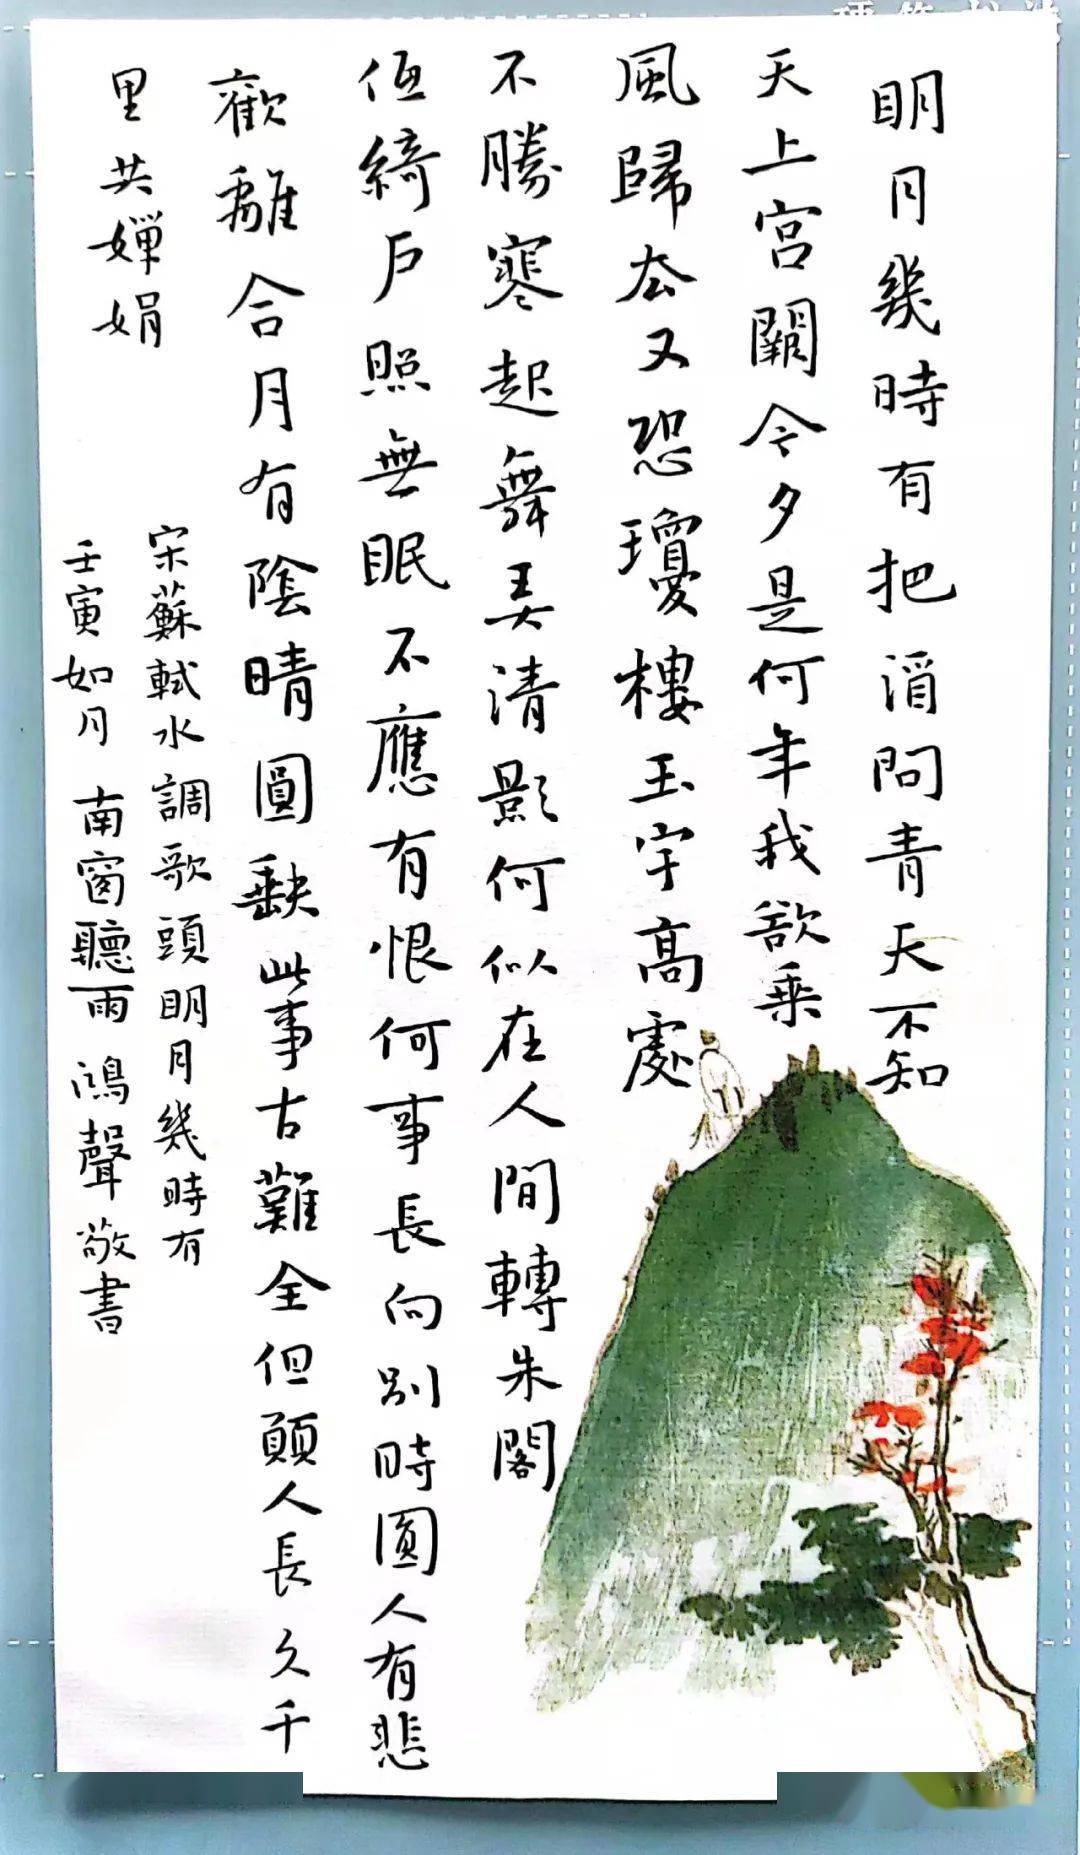 明月幾時有把酒問青天不知
天上宮闕今夕是何年我欲乘
風歸去又恐瓊樓玉宇高處
不勝寒起舞弄清影何似在人間轉朱閣
低綺戶照無眠不應有恨何事長向別時圓人有悲
歡離合月有陰晴圓缺此事古難全但願人長久千
里共嬋娟
宋蘇軾水調歌頭明月幾時有
壬寅如月南窗聽雨鴻聲敬書